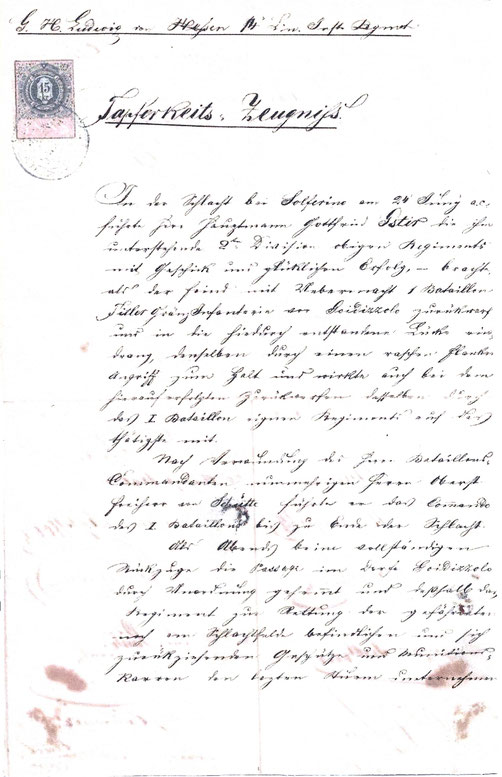 G. H. Ludwig von Hessen 14 Lin. Inft. Regmt.
15
Tapferkeits-Zeugniß.
In der Schlacht bei Solferino am 24 Juny a.c.
führte Herr Hauptmann Gottfried Oster die ihm
unterstehende 2te Division obigen Regiments
mit Geschick und glücklichen Erfolg, – brachte
als der Feind mit Uebermacht 1 Bataillon
Titler Gränz Infanterie vor Guidizzolo zurückwarf
und in die hiedurch entstandene Lücke ein-
drang, denselben durch einen raschen Flanken
Angriff zum Halt und wirkte auch bei dem
hierauf erfolgten Zurückwerfen desselben durch
das I Bataillon eigenen Regiments auf das
thätigste mit.
Nach Verwundung des Herrn Bataillons-
Commandanten nunmehrigen Herrn Oberst
Freiherr von Schütte führte er das Commando
des I Bataillons bis zu Ende der Schlacht.
Als Abends beim vollständigen
Rückzuge die Passage im Dorfe Guidizzolo
durch Unordnung gehemmt und deßhalb das
Regiment zur Rettung der gefährdeten
noch am Schlachtfelde befindlichen und sich
zurückziehenden Geschütze und Munitions-
karren den letzten Sturm unternehmen